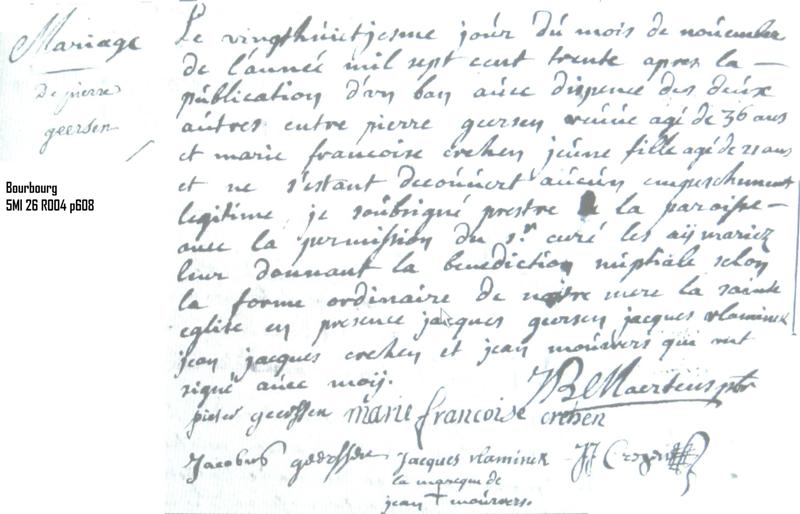 Mariage
De pierre
geersen
Bourbourg
5MI 26 R004 p608
Le vingthuitjesme jour du mois de novembre
de l'année mil sept cent trente apres la —
publication d'vn ban avec dispence des deux
autres entre pierre geersen veuve agé de 36 ans
et marie francoise crehen jeune fille agé de 21 ans
et ne s'estant decouvert aucun empeschement
legitime, je soubsigné prestre de la paroisse —
avec la permission du sr. curé les aij mariez
leur donnant la benediction nuptiale selon
la forme ordinaire de nostre mere la sainte
eglise en presence jacques geersen jacques vlaminck
jean jacques crehen et jean mouvers qui ont
signé avec moij.
JBLMaertens pbr
pieter geerssen marie francoise crehen
Jacobus geerssen jacques vlaminck JJ Cregen
la marcque de
jean + mouvers.